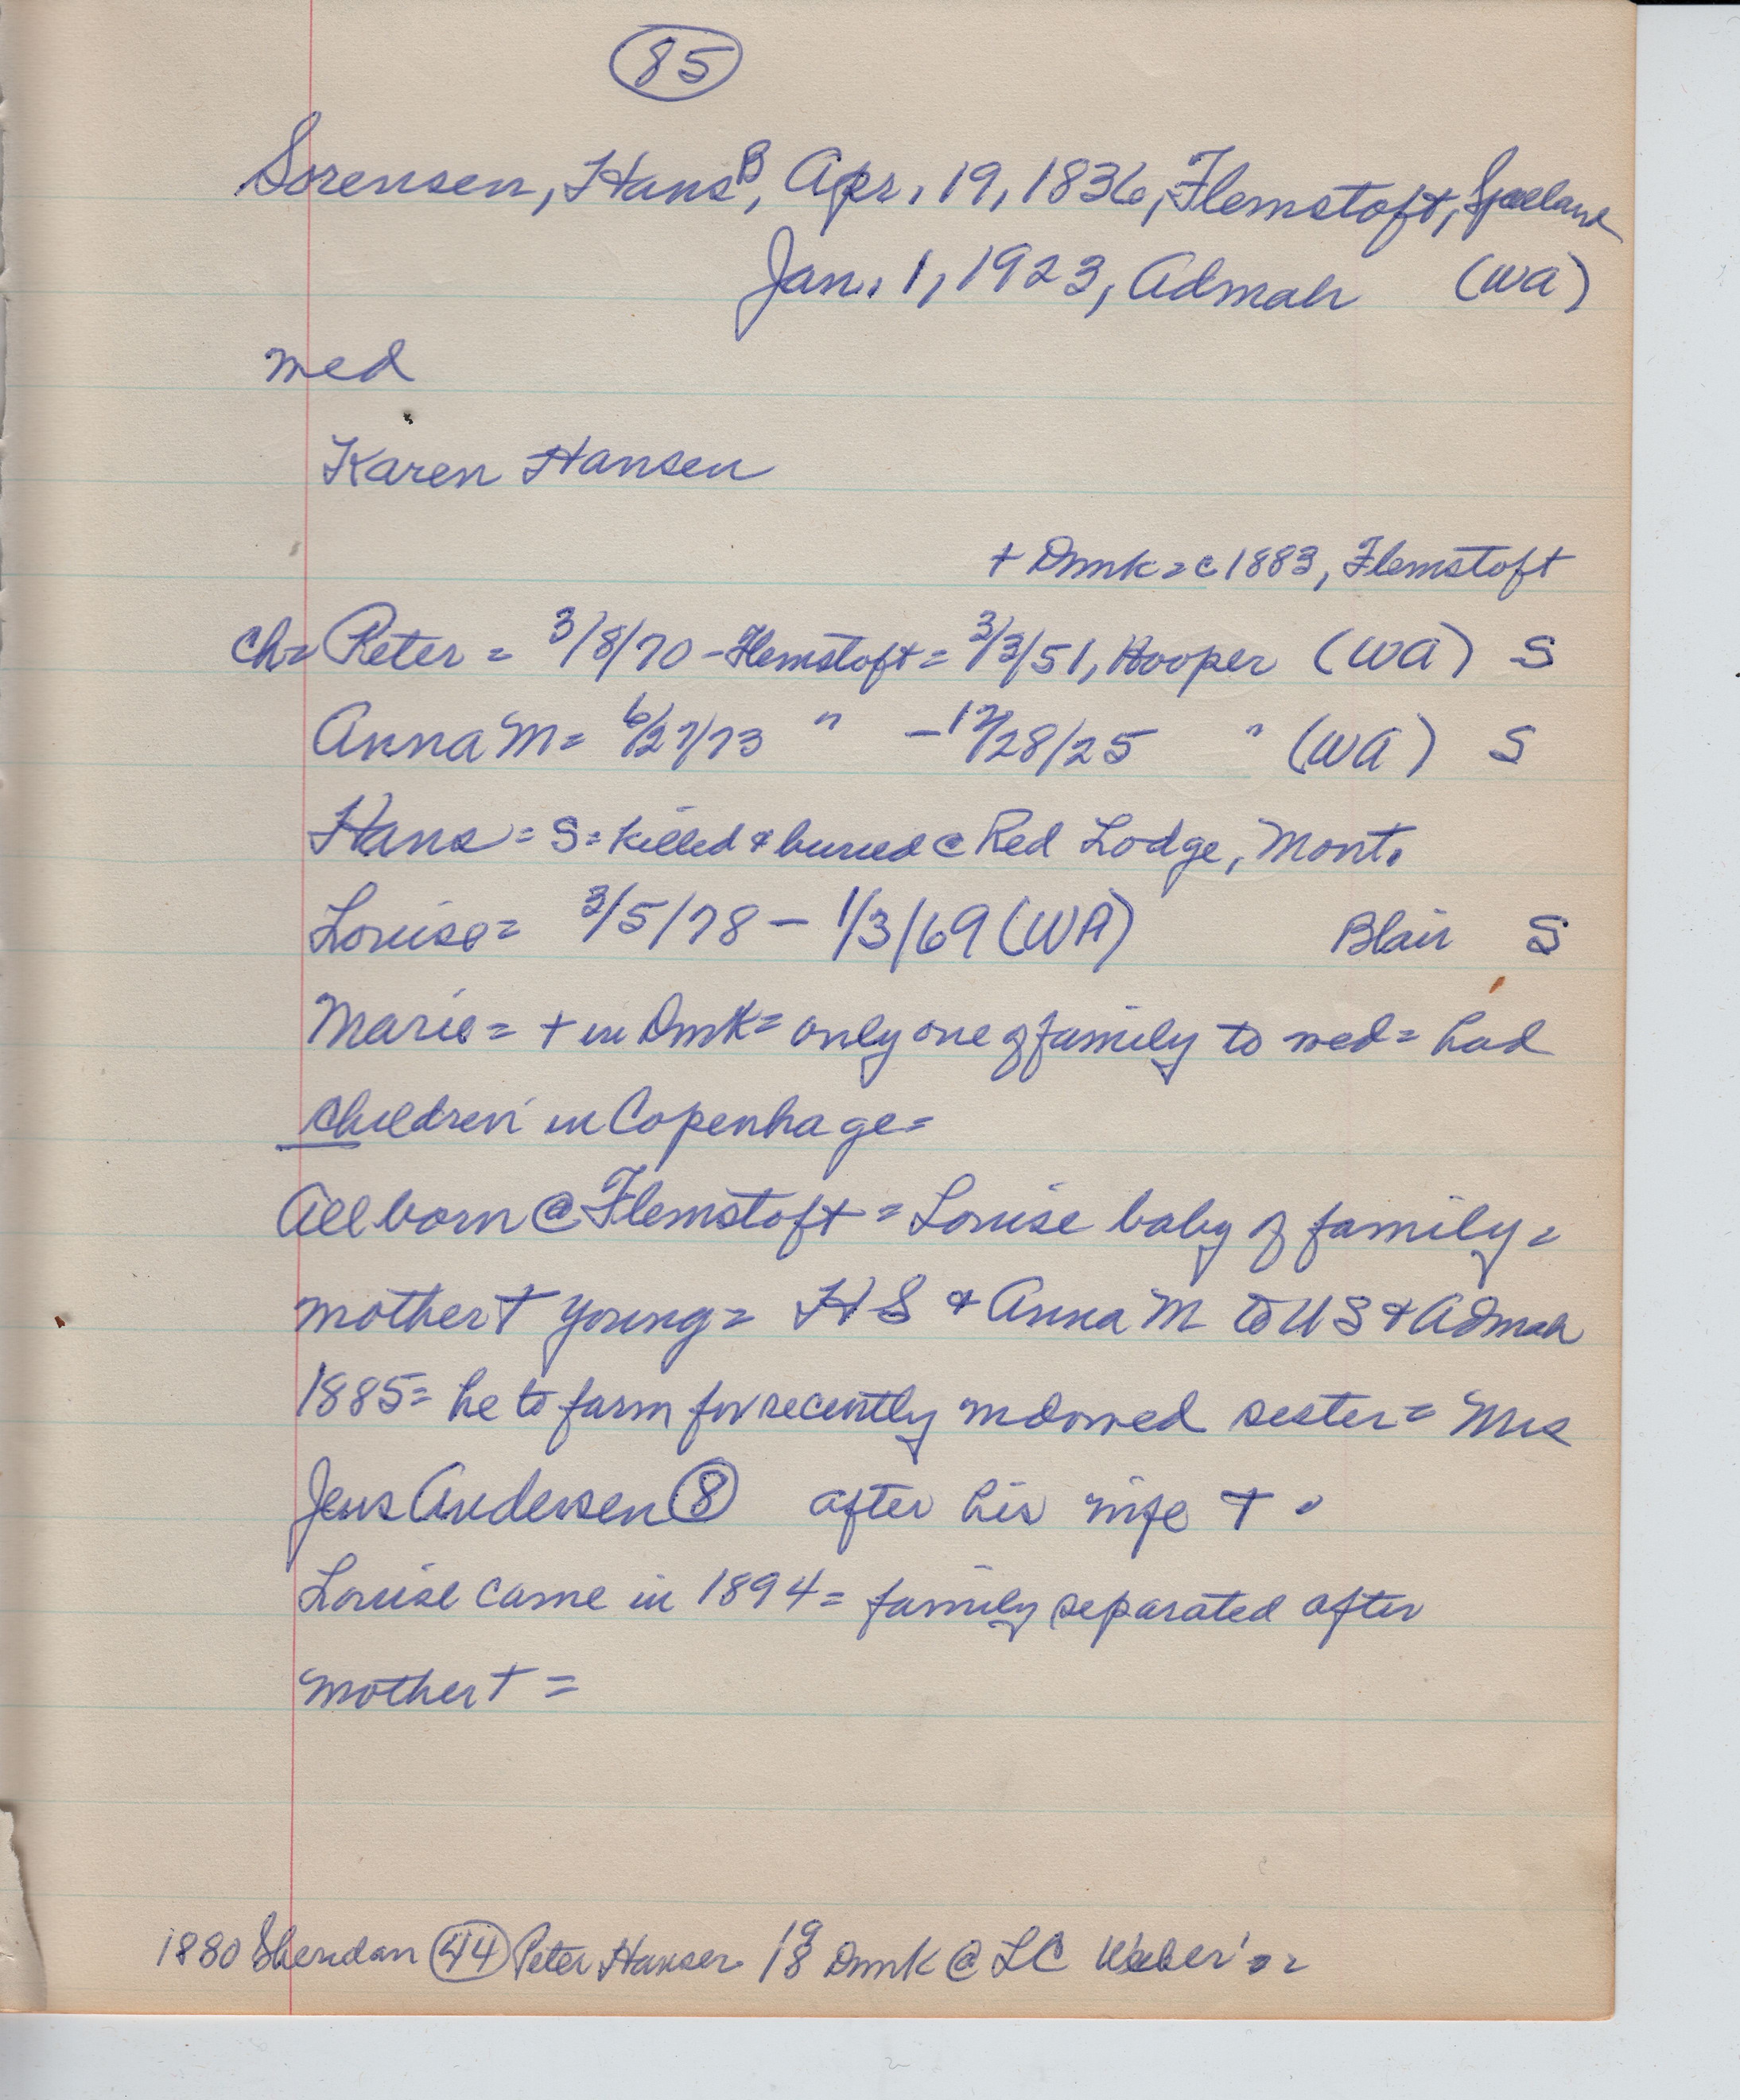 85
Sorensen, Hans B, Apr. 19, 1836, Flemstoft, Sjaelland
Jan. 1, 1923, Admah (WA)
wed
Karen Hansen
+ Dmk = c 1883, Flemstoft
ch = Peter = 3/8/70 - Flemstoft = 3/3/51, Hooper (WA) S
Anna M = 6/27/73 " - 12/28/25 " (WA) S
Hans = S = killed & buried @ Red Lodge, Mont.
Louise = 3/5/78 - 1/3/69 (WA) Blair S
Marie = + in Dmk = only one of family to wed = had
children in Copenhage =
All born @ Flemstoft = Louise baby of family =
mother + young = HS & Anna M to US & Admah
1885 = he to farm for recently widowed sister = Mrs
Jens Andersen 8 after his wife + =
Louise came in 1894 = family separated after
mother + =
1880 Sheridan 44 Peter Hansen 18 Dmk @ LC Weber's =